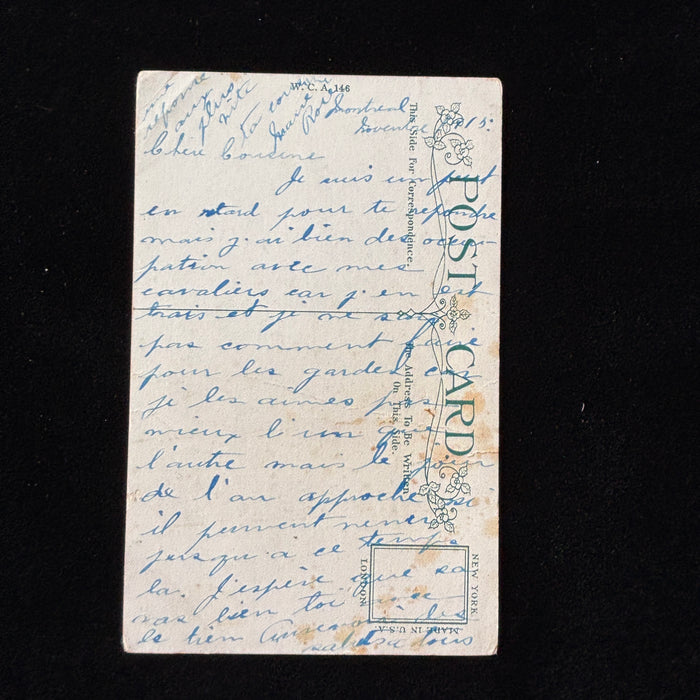 W.C.A. 146
Montreal
Novembre 1915.
Chère Cousine
Je suis un peut
en retard pour te repondre
mais j'ai bien des occu-
pation avec mes
cavaliers car j'en est
trois et je ne sais
pas comment faire
pour les garder car
je les aimes pas
mieux l'un que
l'autre mais le jour
de l'an approche si
il peuvent venir
jusqu'a ce temps
la. J'espère que sa
vas bien toi avec
le tien Aurevoir des
salut a tous
reponse
au
plus
vite
ta cousine
Marie
Rose
POST CARD
This Side For Correspondence.
The Address To Be Written
On This Side.
NEW YORK
LONDON
MADE IN U.S.A.